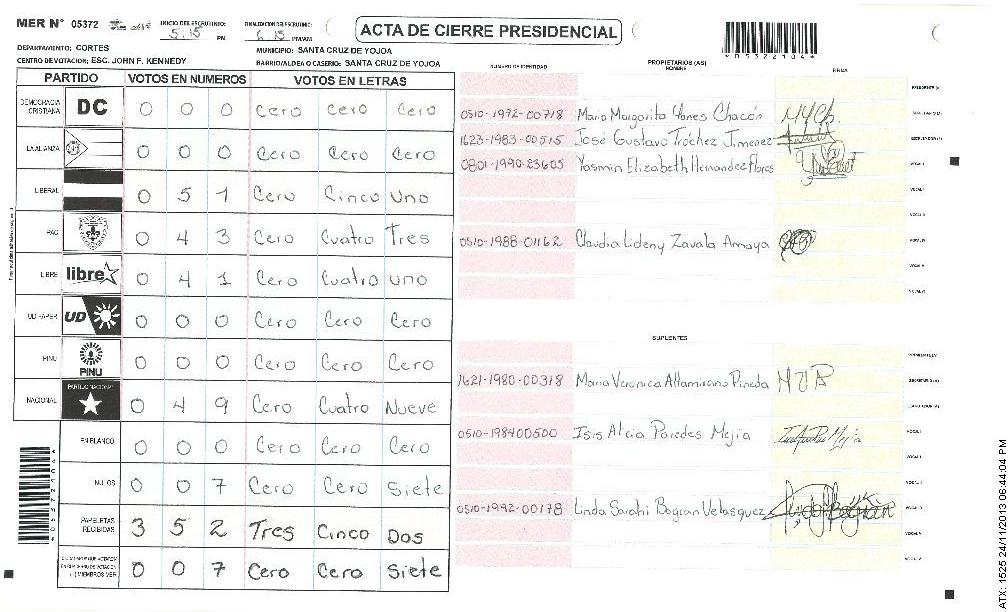 MER N° 05372
INICIO DEL ESCRUTINIO: 5:15 PM
FINALIZACION DEL ESCRUTINIO: 6:15 PM/AM
ACTA DE CIERRE PRESIDENCIAL
*05372104*
DEPARTAMENTO: CORTES
MUNICIPIO: SANTA CRUZ DE YOJOA
CENTRO DE VOTACION: ESC. JOHN F. KENNEDY
BARRIO/ALDEA O CASERIO: SANTA CRUZ DE YOJOA
PARTIDO VOTOS EN NUMEROS VOTOS EN LETRAS
DEMOCRACIA CRISTIANA DC 0 0 0 Cero Cero Cero
LA ALIANZA 0 0 0 Cero Cero Cero
LIBERAL 0 5 1 Cero Cinco Uno
PAC 0 4 3 Cero Cuatro Tres
LIBRE libre 0 4 1 Cero Cuatro uno
UD FAPER UD 0 0 0 Cero Cero Cero
PINU PINU 0 0 0 Cero Cero Cero
NACIONAL PARTIDO NACIONAL 0 4 9 Cero Cuatro Nueve
EN BLANCO 0 0 0 Cero Cero Cero
NULOS 0 0 7 Cero Cero Siete
PAPELETAS RECIBIDAS 3 5 2 Tres Cinco Dos
CIUDADANOS QUE VOTARON EN CUADERNO DE VOTACION (+) MIEMBROS MER 0 0 7 Cero Cero Siete
*05372104*
NUMERO DE IDENTIDAD
PROPIETARIOS (AS)
NOMBRE
FIRMA
PRESIDENTE (A)
0510-1972-00718 Maria Margarita Yanes Chacón MYCh. SECRETARIO (A)
1623-1983-00515 José Gustavo Tróchez Jimenez ESCRUTADOR (A)
0801-1990-23605 Yasmin Elizabeth Hernandez Flores VOCAL I
VOCAL II
VOCAL III
0510-1988-01162 Claudia Lideny Zavala Amaya VOCAL IV
VOCAL V
VOCAL VI
SUPLENTES
PRESIDENTE (A)
1621-1980-00318 Maria Veronica Altamirano Pineda SECRETARIO (A)
ESCRUTADOR (A)
0510-198400500 Isis Alcia Paredes Mejia VOCAL I
VOCAL II
VOCAL III
0510-1992-00178 Linda Sarahi Bogran Velasquez VOCAL IV
VOCAL V
VOCAL VI
ATX: 1525 24/11/2013 06:44:04 PM